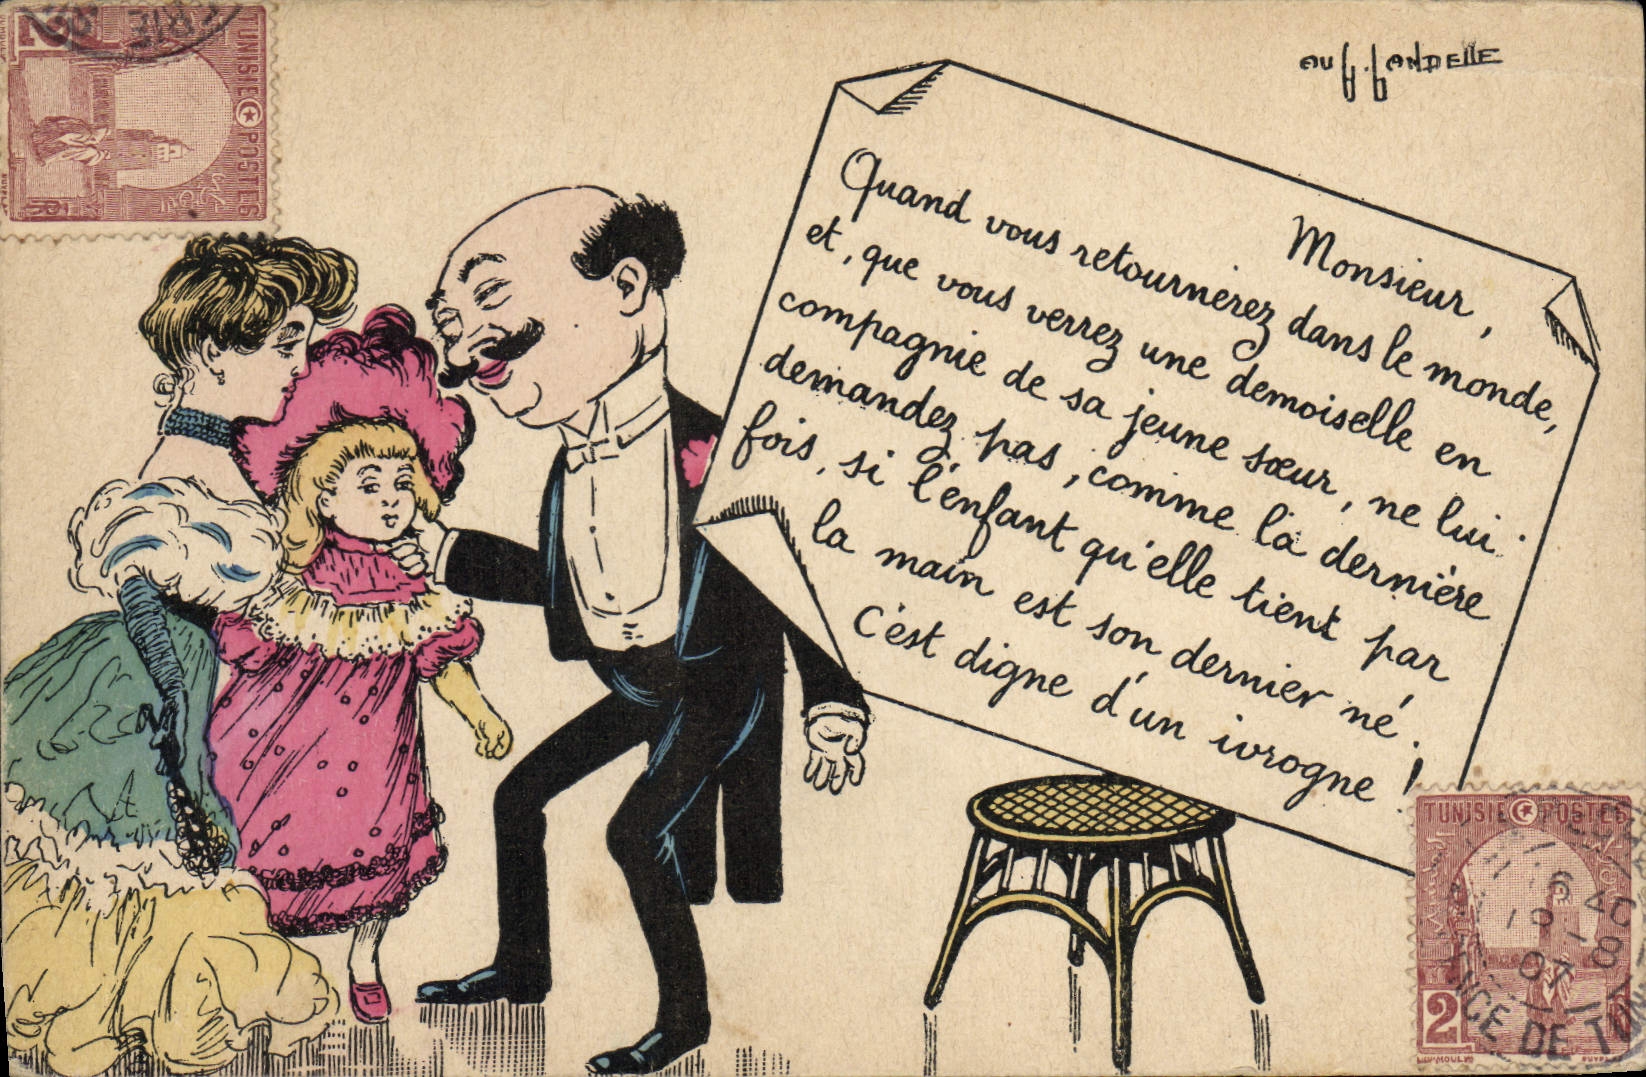 AUG. LANDELLE
Monsieur,
Quand vous retournerez dans le monde,
et, que vous verrez une demoiselle en
compagnie de sa jeune sœur, ne lui
demandez pas, comme la dernière
fois, si l'enfant qu'elle tient par
la main est son dernier né.
C'est digne d'un ivrogne !
TUNISIE POSTES
2
RF
TUNISIE POSTES
2
07
DE